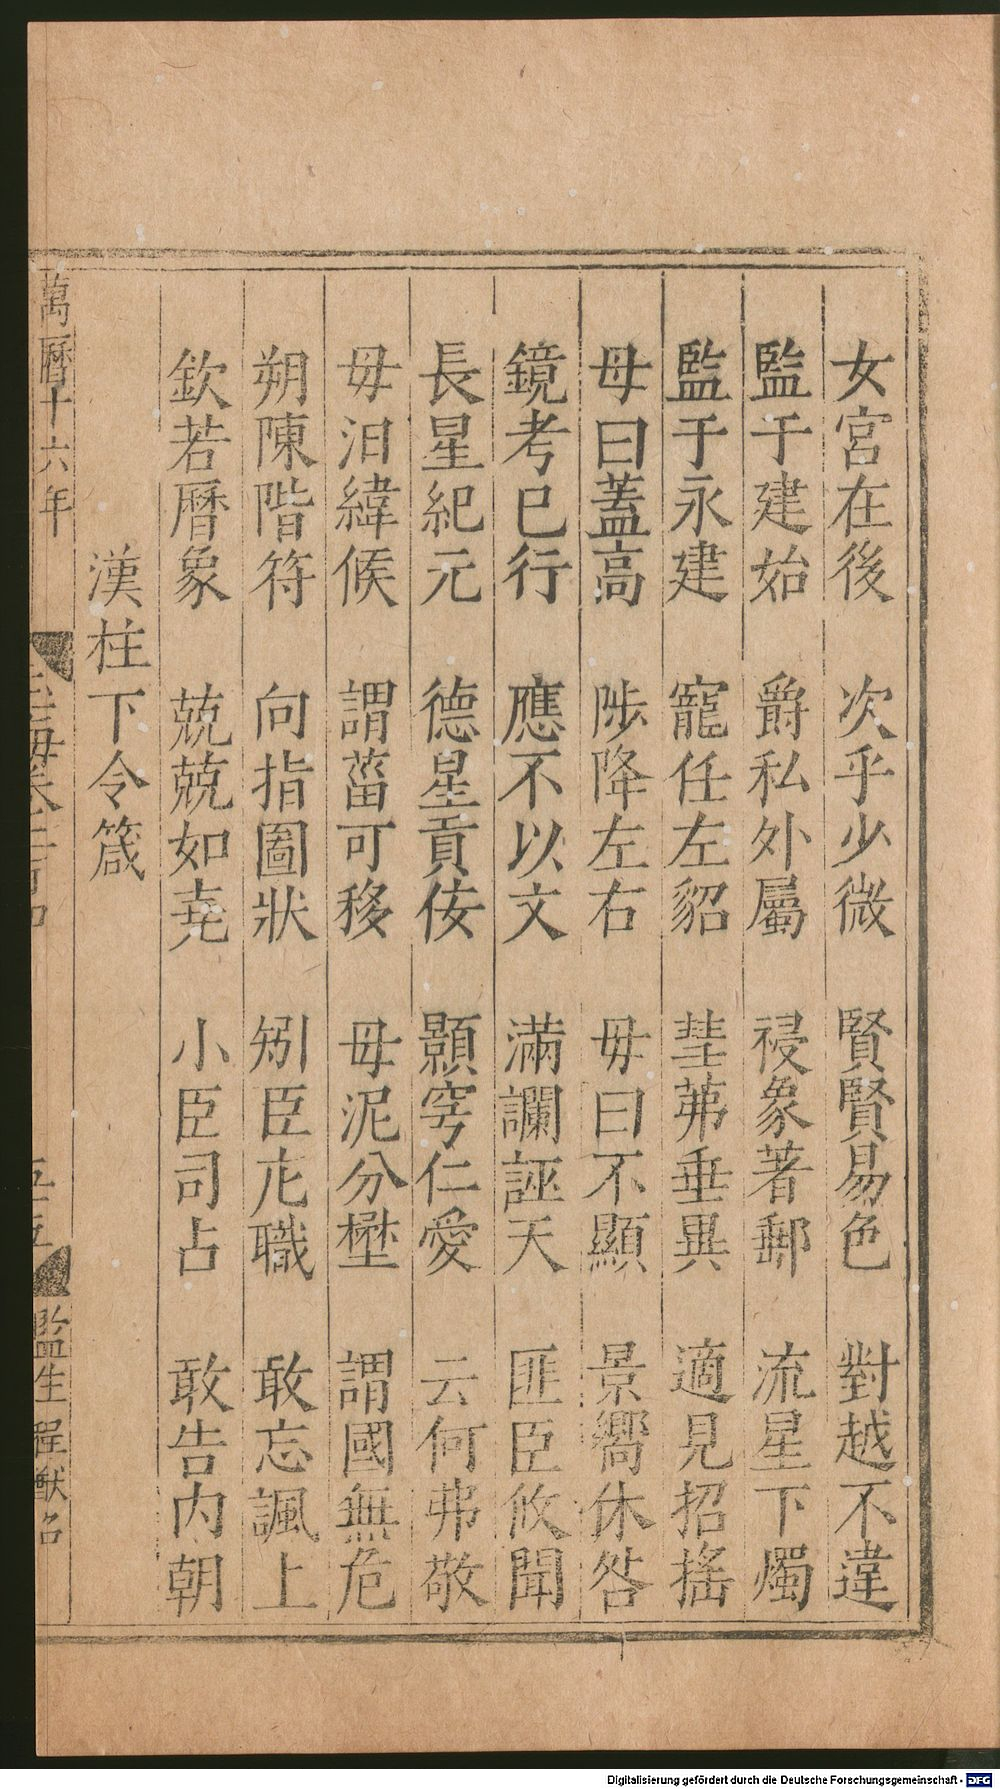 女宮在後 次乎少微 賢賢易色 對越不違
監于建始 爵私外屬 祲象著郵 流星下燭
監于永建 寵任左貂 彗茀垂異 適見招搖
毋曰蓋高 陟降左右 毋曰不顯 景嚮休咎
鏡考已行 應不以文 滿讕誣天 匪臣攸聞
長星紀元 德星貢佞 顥穹仁愛 云何弗敬
毋汨緯候 謂菑可移 毋泥分壄 謂國無危
朔陳階符 向指圖狀 矧臣尤職 敢忘諷上
欽若曆象 兢兢如堯 小臣司占 敢告内朝
漢柱下令箴
萬曆十六年
五十五
監生程猷
Digitalisierung gefördert durch die Deutsche Forschungsgemeinschaft - DFG